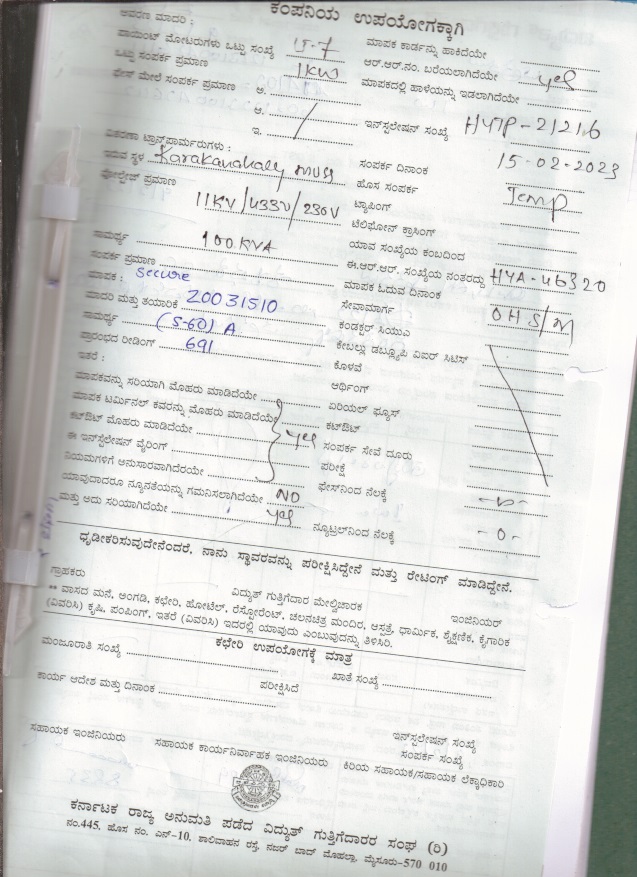 ಕಂಪನಿಯ ಉಪಯೋಗಕ್ಕಾಗಿ
ಆವರಣ ಮಾದರಿ :
ಪಾಯಿಂಟ್ ಮೋಟರುಗಳು ಒಟ್ಟು ಸಂಖ್ಯೆ 15-7 ಮಾಪಕ ಕಾರ್ಡನ್ನು ಹಾಕಿದೆಯೇ
ಒಟ್ಟು ಸಂಪರ್ಕ ಪ್ರಮಾಣ 1KW ಆರ್.ಆರ್.ನಂ. ಬರೆಯಲಾಗಿದೆಯೇ yes
ಫೇಸ್ ಮೇಲೆ ಸಂಪರ್ಕ ಪ್ರಮಾಣ ಅ. ಮಾಪಕದಲ್ಲಿ ಹಾಳೆಯನ್ನು ಇಡಲಾಗಿದೆಯೇ
ಆ.
ಇ. ಇನ್‌ಸ್ಟಲೇಷನ್ ಸಂಖ್ಯೆ HYTP-21216
ವಿತರಣಾ ಟ್ರಾನ್ಸ್‌ಫಾರ್ಮರುಗಳು :
ಇರುವ ಸ್ಥಳ Karakanahaly muss ಸಂಪರ್ಕ ದಿನಾಂಕ 15-02-2023
ವೋಲ್ಟೇಜ್ ಪ್ರಮಾಣ ಹೊಸ ಸಂಪರ್ಕ Temp
11KV/433V/230V ಟ್ಯಾಪಿಂಗ್
ಟೆಲಿಫೋನ್ ಕ್ರಾಸಿಂಗ್
ಸಾಮರ್ಥ್ಯ 100 KVA ಯಾವ ಸಂಖ್ಯೆಯ ಕಂಬದಿಂದ
ಸಂಪರ್ಕ ಪ್ರಮಾಣ ಈ.ಆರ್.ಆರ್. ಸಂಖ್ಯೆಯ ನಂತರದ್ದು HYA-46320
ಮಾಪಕ : Secure ಮಾಪಕ ಓದುವ ದಿನಾಂಕ
ಮಾದರಿ ಮತ್ತು ತಯಾರಿಕೆ 20031510 ಸೇವಾಮಾರ್ಗ OHS/M
ಸಾಮರ್ಥ್ಯ (5-60) A ಕಂಡಕ್ಟರ್ ಸಿಯುಎ
ಪ್ರಾರಂಭದ ರೀಡಿಂಗ್ 691 ಕೇಬಲ್ಲು ಡಬ್ಲ್ಯೂಪಿ ವಿಐರ್ ಸಿಟಿಸ್
ಇತರೆ : ಕೊಳವೆ
ಮಾಪಕವನ್ನು ಸರಿಯಾಗಿ ಮೊಹರು ಮಾಡಿದೆಯೇ ಅರ್ಥಿಂಗ್
ಮಾಪಕ ಟರ್ಮಿನಲ್ ಕವರನ್ನು ಮೊಹರು ಮಾಡಿದೆಯೇ ಏರಿಯಲ್ ಫ್ಯೂಸ್
ಕಟ್‌ಔಟ್ ಮೊಹರು ಮಾಡಿದೆಯೇ yes ಕಟ್‌ಔಟ್
ಈ ಇನ್‌ಸ್ಟಲೇಷನ್ ವೈರಿಂಗ್ ಸಂಪರ್ಕ ಸೇವೆ ದೂರು
ನಿಯಮಗಳಿಗೆ ಅನುಸಾರವಾಗಿದೆರೆಯೇ ಪರೀಕ್ಷೆ
ಯಾವುದಾದರೂ ನ್ಯೂನತೆಯನ್ನು ಗಮನಿಸಲಾಗಿದೆಯೇ NO ಫೇಸ್‌ನಿಂದ ನೆಲಕ್ಕೆ -0-
ಮತ್ತು ಅದು ಸರಿಯಾಗಿದೆಯೇ yes ನ್ಯೂಟ್ರಲ್‌ನಿಂದ ನೆಲಕ್ಕೆ -0-
ಧೃಡೀಕರಿಸುವುದೇನೆಂದರೆ, ನಾನು ಸ್ಥಾವರವನ್ನು ಪರೀಕ್ಷಿಸಿದ್ದೇನೆ ಮತ್ತು ರೇಟಿಂಗ್ ಮಾಡಿದ್ದೇನೆ.
ಗ್ರಾಹಕರು ವಿದ್ಯುತ್ ಗುತ್ತಿಗೆದಾರ ಮೇಲ್ವಿಚಾರಕ ಇಂಜಿನಿಯರ್
** ವಾಸದ ಮನೆ, ಅಂಗಡಿ, ಕಛೇರಿ, ಹೋಟೆಲ್, ರೆಸ್ಟೋರೆಂಟ್, ಚಲನಚಿತ್ರ ಮಂದಿರ, ಆಸ್ಪತ್ರೆ, ಧಾರ್ಮಿಕ, ಶೈಕ್ಷಣಿಕ, ಕೈಗಾರಿಕ
(ವಿವರಿಸಿ) ಕೃಷಿ, ಪಂಪಿಂಗ್, ಇತರೆ (ವಿವರಿಸಿ) ಇದರಲ್ಲಿ ಯಾವುದು ಎಂಬುವುದನ್ನು ತಿಳಿಸಿರಿ.
ಕಛೇರಿ ಉಪಯೋಗಕ್ಕೆ ಮಾತ್ರ
ಮಂಜೂರಾತಿ ಸಂಖ್ಯೆ ಖಾತೆ ಸಂಖ್ಯೆ
ಕಾರ್ಯ ಆದೇಶ ಮತ್ತು ದಿನಾಂಕ ಪರೀಕ್ಷಿಸಿದೆ
ಇನ್‌ಸ್ಟಲೇಷನ್ ಸಂಖ್ಯೆ
ಸಂಪರ್ಕ ಸಂಖ್ಯೆ
ಸಹಾಯಕ ಇಂಜಿನಿಯರು ಸಹಾಯಕ ಕಾರ್ಯನಿರ್ವಾಹಕ ಇಂಜಿನಿಯರು ಕಿರಿಯ ಸಹಾಯಕ/ಸಹಾಯಕ ಲೆಕ್ಕಾಧಿಕಾರಿ
ಕರ್ನಾಟಕ ರಾಜ್ಯ ಅನುಮತಿ ಪಡೆದ ವಿದ್ಯುತ್ ಗುತ್ತಿಗೆದಾರರ ಸಂಘ (ರಿ)
ನಂ.445, ಹೊಸ ನಂ. ಎನ್-10, ಶಾಲಿವಾಹನ ರಸ್ತೆ, ನಜರ್ ಬಾದ್ ಮೊಹಲ್ಲಾ, ಮೈಸೂರು-570 010